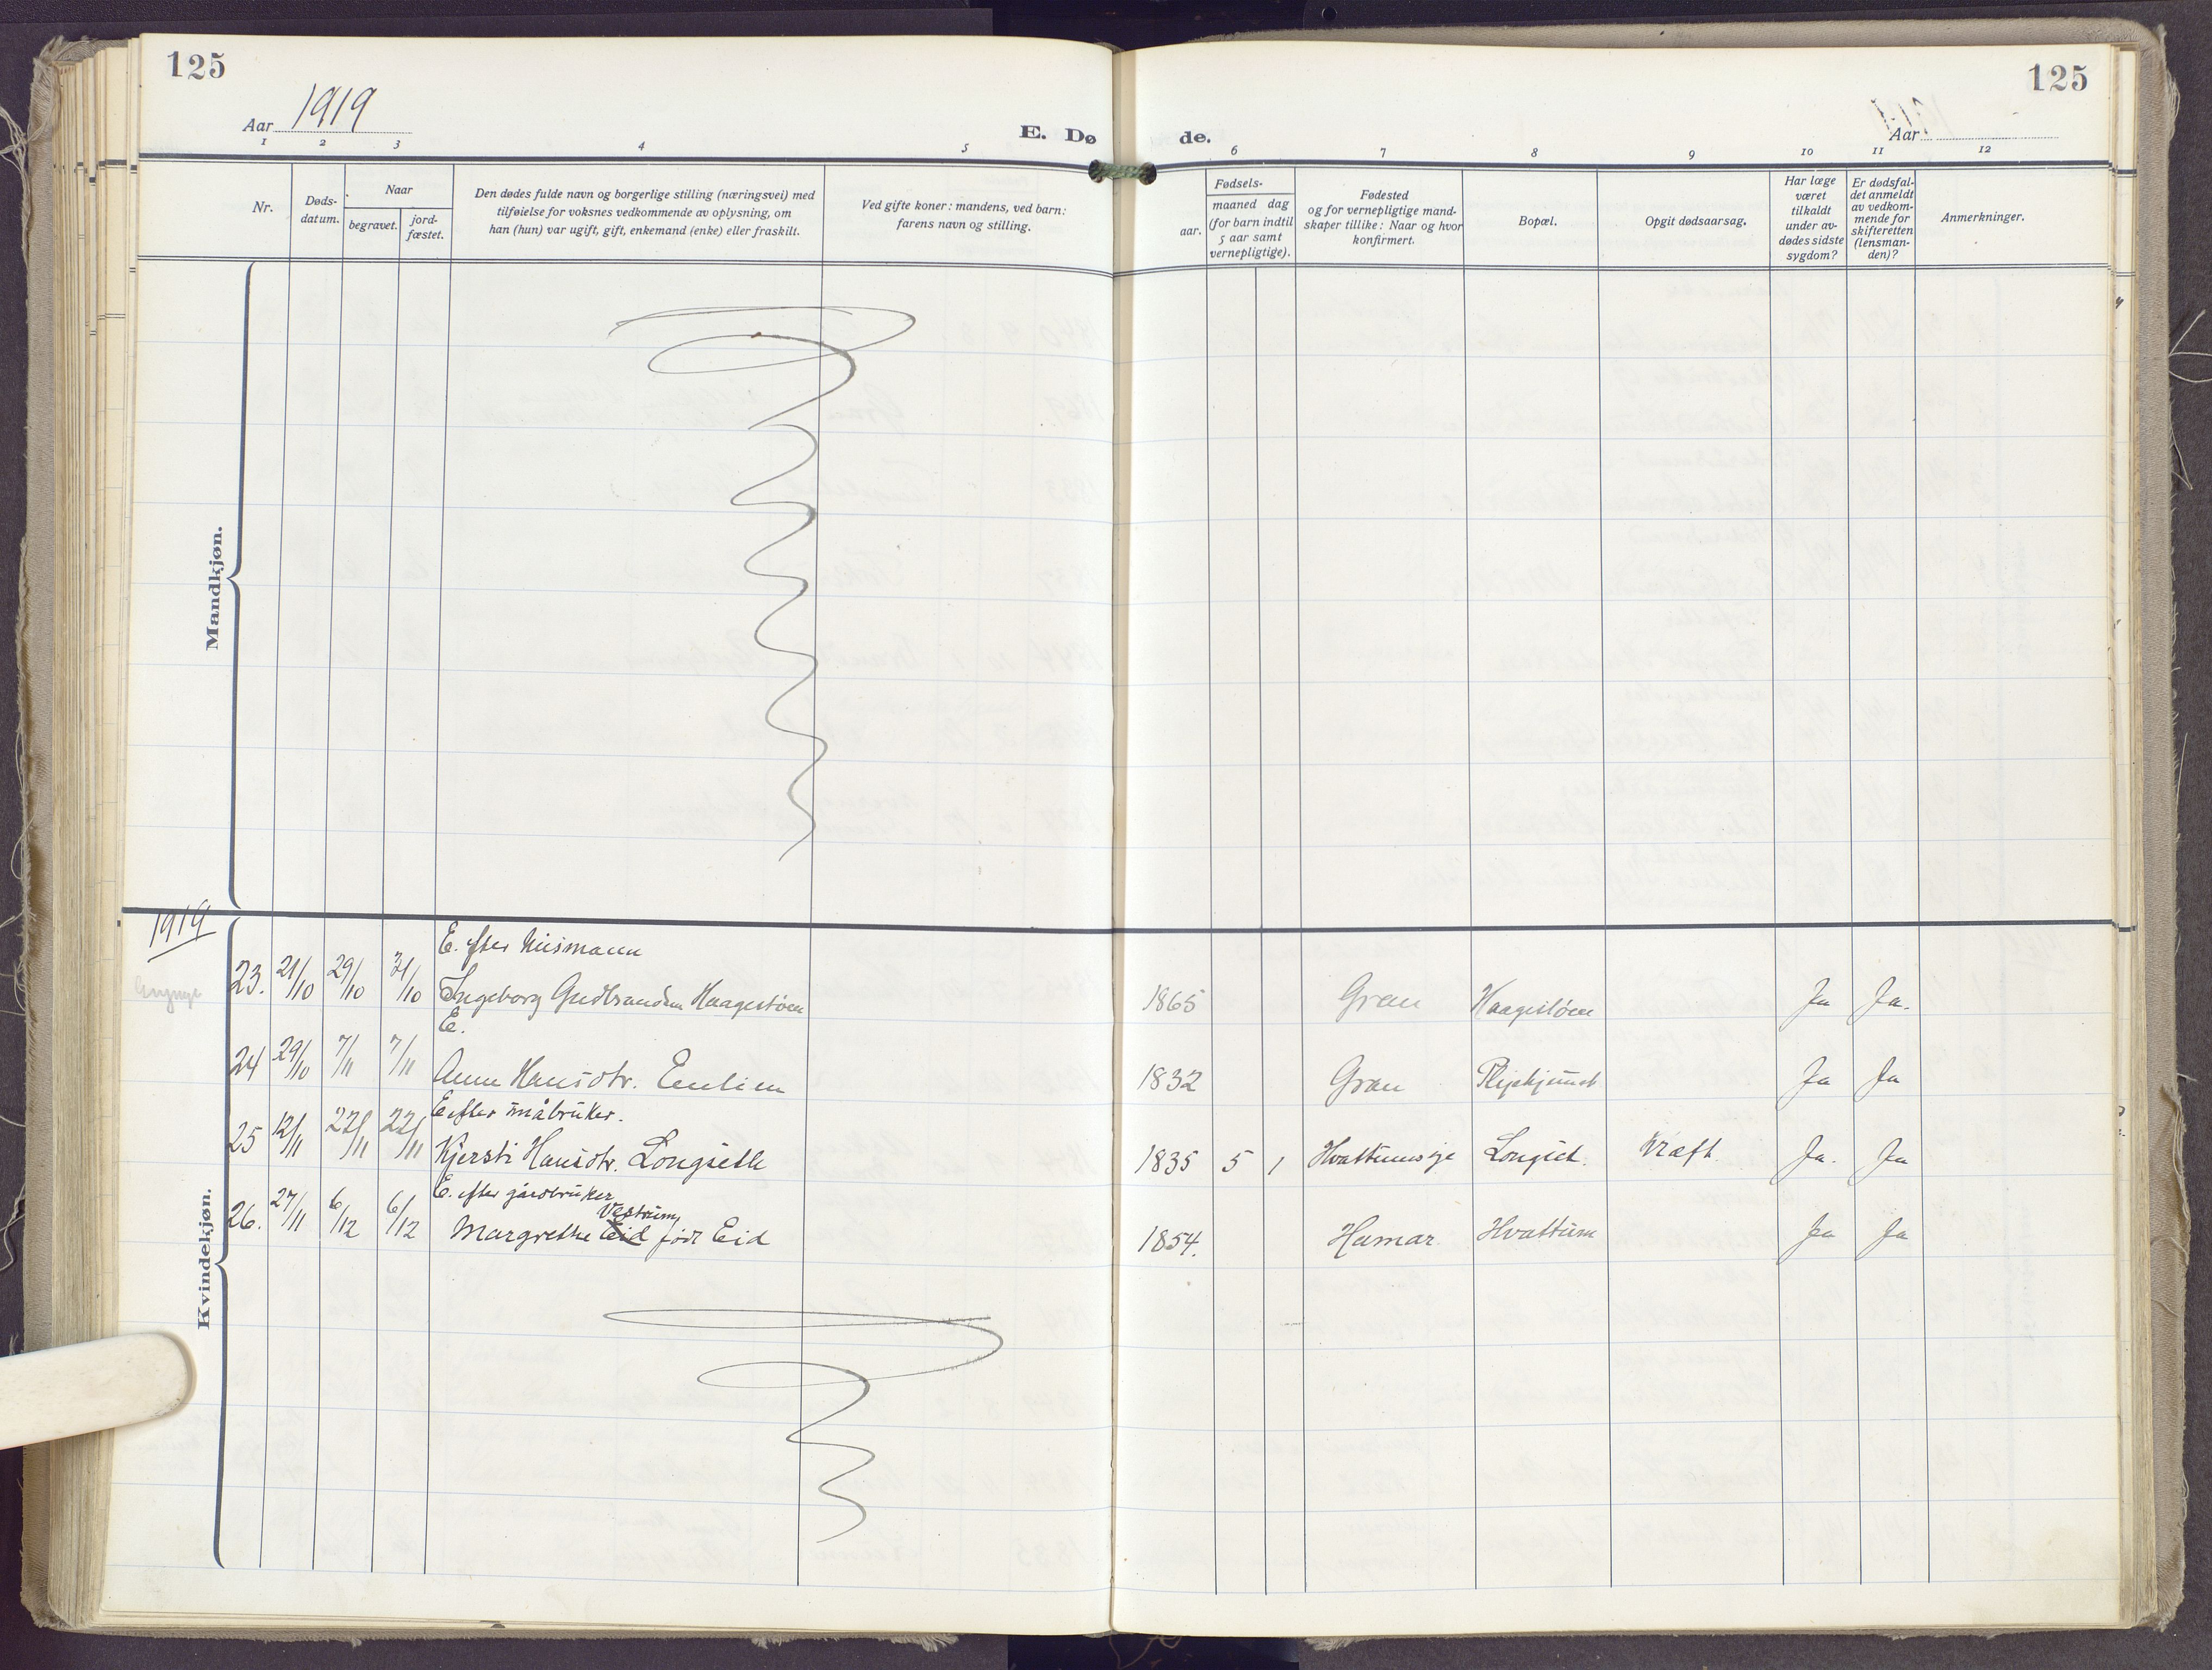 125
125
Aar 1919
E. Dø
de.
Aar
1 2 3 4 5 6 7 8 9 10 11 12
Nr.
Døds-
datum.
Naar
begravet.
jord-
fæstet.
Den dødes fulde navn og borgerlige stilling (næringsvei) med
tilføielse for voksnes vedkommende av oplysning, om
han (hun) var ugift, gift, enkemand (enke) eller fraskilt.
Ved gifte koner: mandens, ved barn:
farens navn og stilling.
Fødsels-
aar.
maaned dag
(for barn indtil
5 aar samt
vernepligtige).
Fødested
og for vernepligtige mand-
skaper tillike: Naar og hvor
konfirmert.
Bopæl.
Opgit dødsaarsag.
Har læge
været
tilkaldt
under av-
dødes sidste
sygdom?
Er dødsfal-
det anmeldt
av vedkom-
mende for
skifteretten
(lensman-
den)?
Anmerkninger.
Mandkjøn.
1919
Kvindekjøn.
E. efter husmann
23. 21/10 29/10 31/10 Ingeborg Gudbrandsen Haagestøen 1865 Gran Haagestøen Ja Ja.
E.
24 29/10 7/11 7/11 Anne Hansdtr. Enlien 1832 Gran Ja Ja
E efter småbruker.
25 12/11 22/11 22/11 Kjersti Hansdtr. Longseth 1835 5 1 Hvattumseje Longset. Kræft. Ja. Ja
E. efter gårdbruker
Vestrum
26. 27/11 6/12 6/12 Margrethe Eid født Eid 1854. Hamar Hvattum Ja Ja